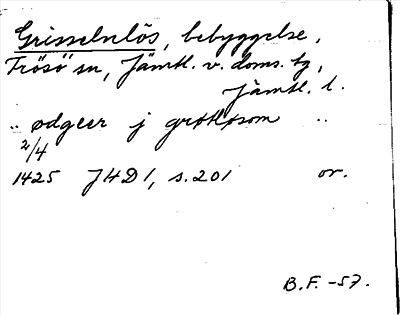 Grisselnlös, bebyggelse,
Frösö sn, Jämtl. v. doms. tg,
Jämtl. l.
.. ødgeer j grøtløsom ..
2/4
1425 JHD 1, s. 201 or.
B.F. -57.